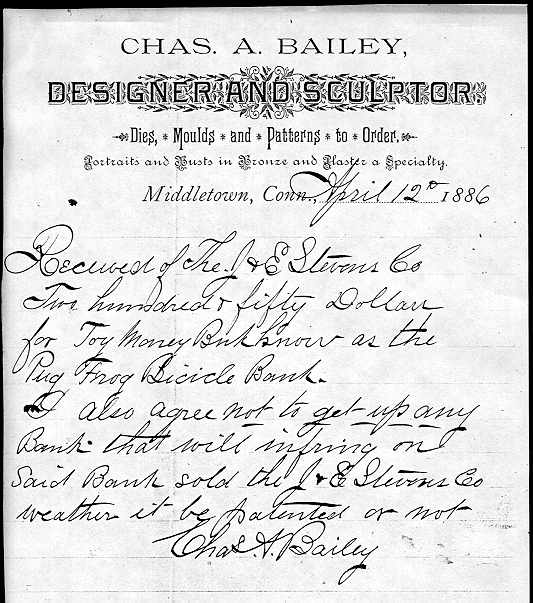 CHAS. A. BAILEY,
DESIGNER AND SCULPTOR.
Dies, * Moulds * and * Patterns * to * Order,
Portraits and Busts in Bronze and Plaster a Specialty.
Middletown, Conn., April 12th 1886
Received of The J & E Stevens Co
Two hundred & fifty Dollars
for Toy Money Bnk know as the
Pug Frog Bicicle Bank.
I also agree not to get up any
Bank that will infring on
said Bank sold the J & E Stevens Co
weather it be patented or not
Chas. A. Bailey